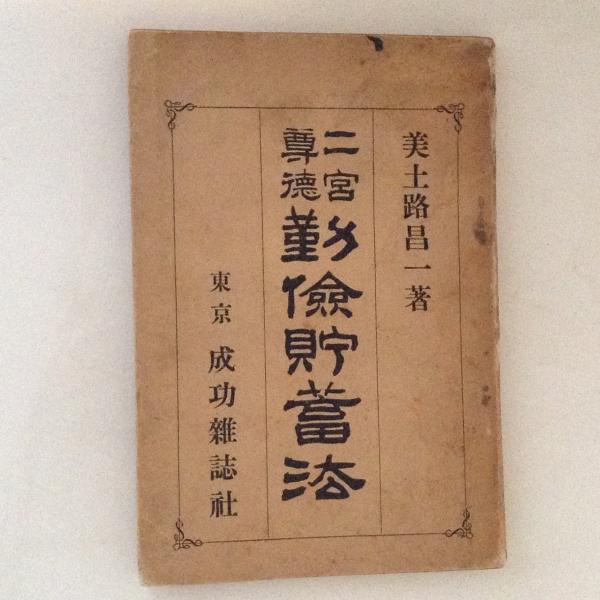 美土路昌一著
二宮尊德勤儉貯蓄法
東京 成功雜誌社